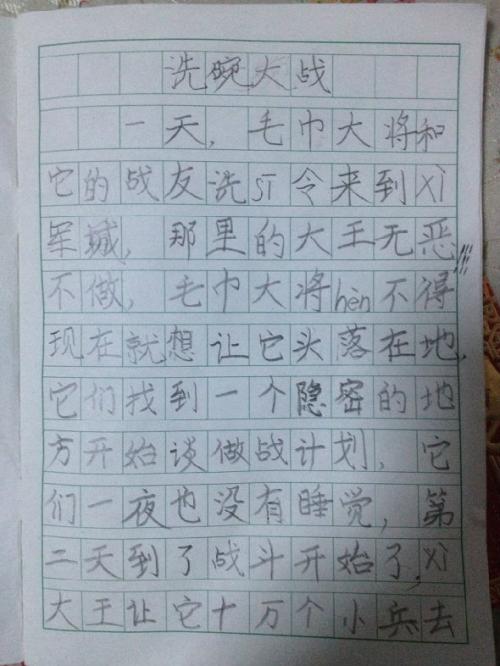 洗碗大战
一天，毛巾大将和
它的战友洗ST令来到xì
军城，那里的大王无恶
不做，毛巾大将hèn不得
现在就想让它头落在地，
它们找到一个隐密的地
方开始谈做战计划，它
们一夜也没有睡觉，第
二天到了战斗开始了，xì
大王让它十万个小兵去